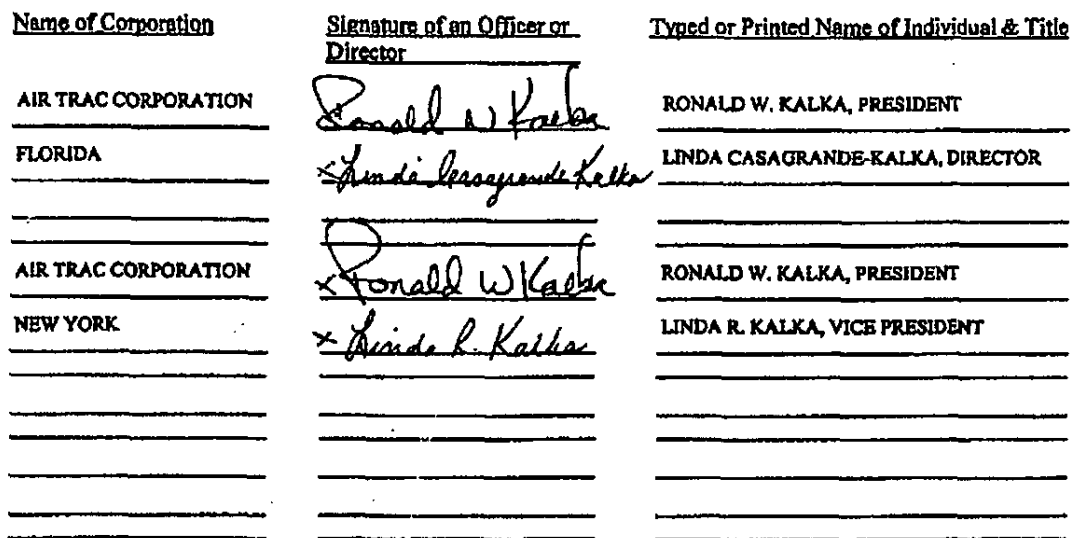 Name of Corporation Signature of an Officer or Director Typed or Printed Name of Individual & Title
AIR TRAC CORPORATION Ronald W Kalka RONALD W. KALKA, PRESIDENT
FLORIDA x Linda Casagrande Kalka LINDA CASAGRANDE-KALKA, DIRECTOR
AIR TRAC CORPORATION x Ronald W Kalka RONALD W. KALKA, PRESIDENT
NEW YORK x Linda R. Kalka LINDA R. KALKA, VICE PRESIDENT